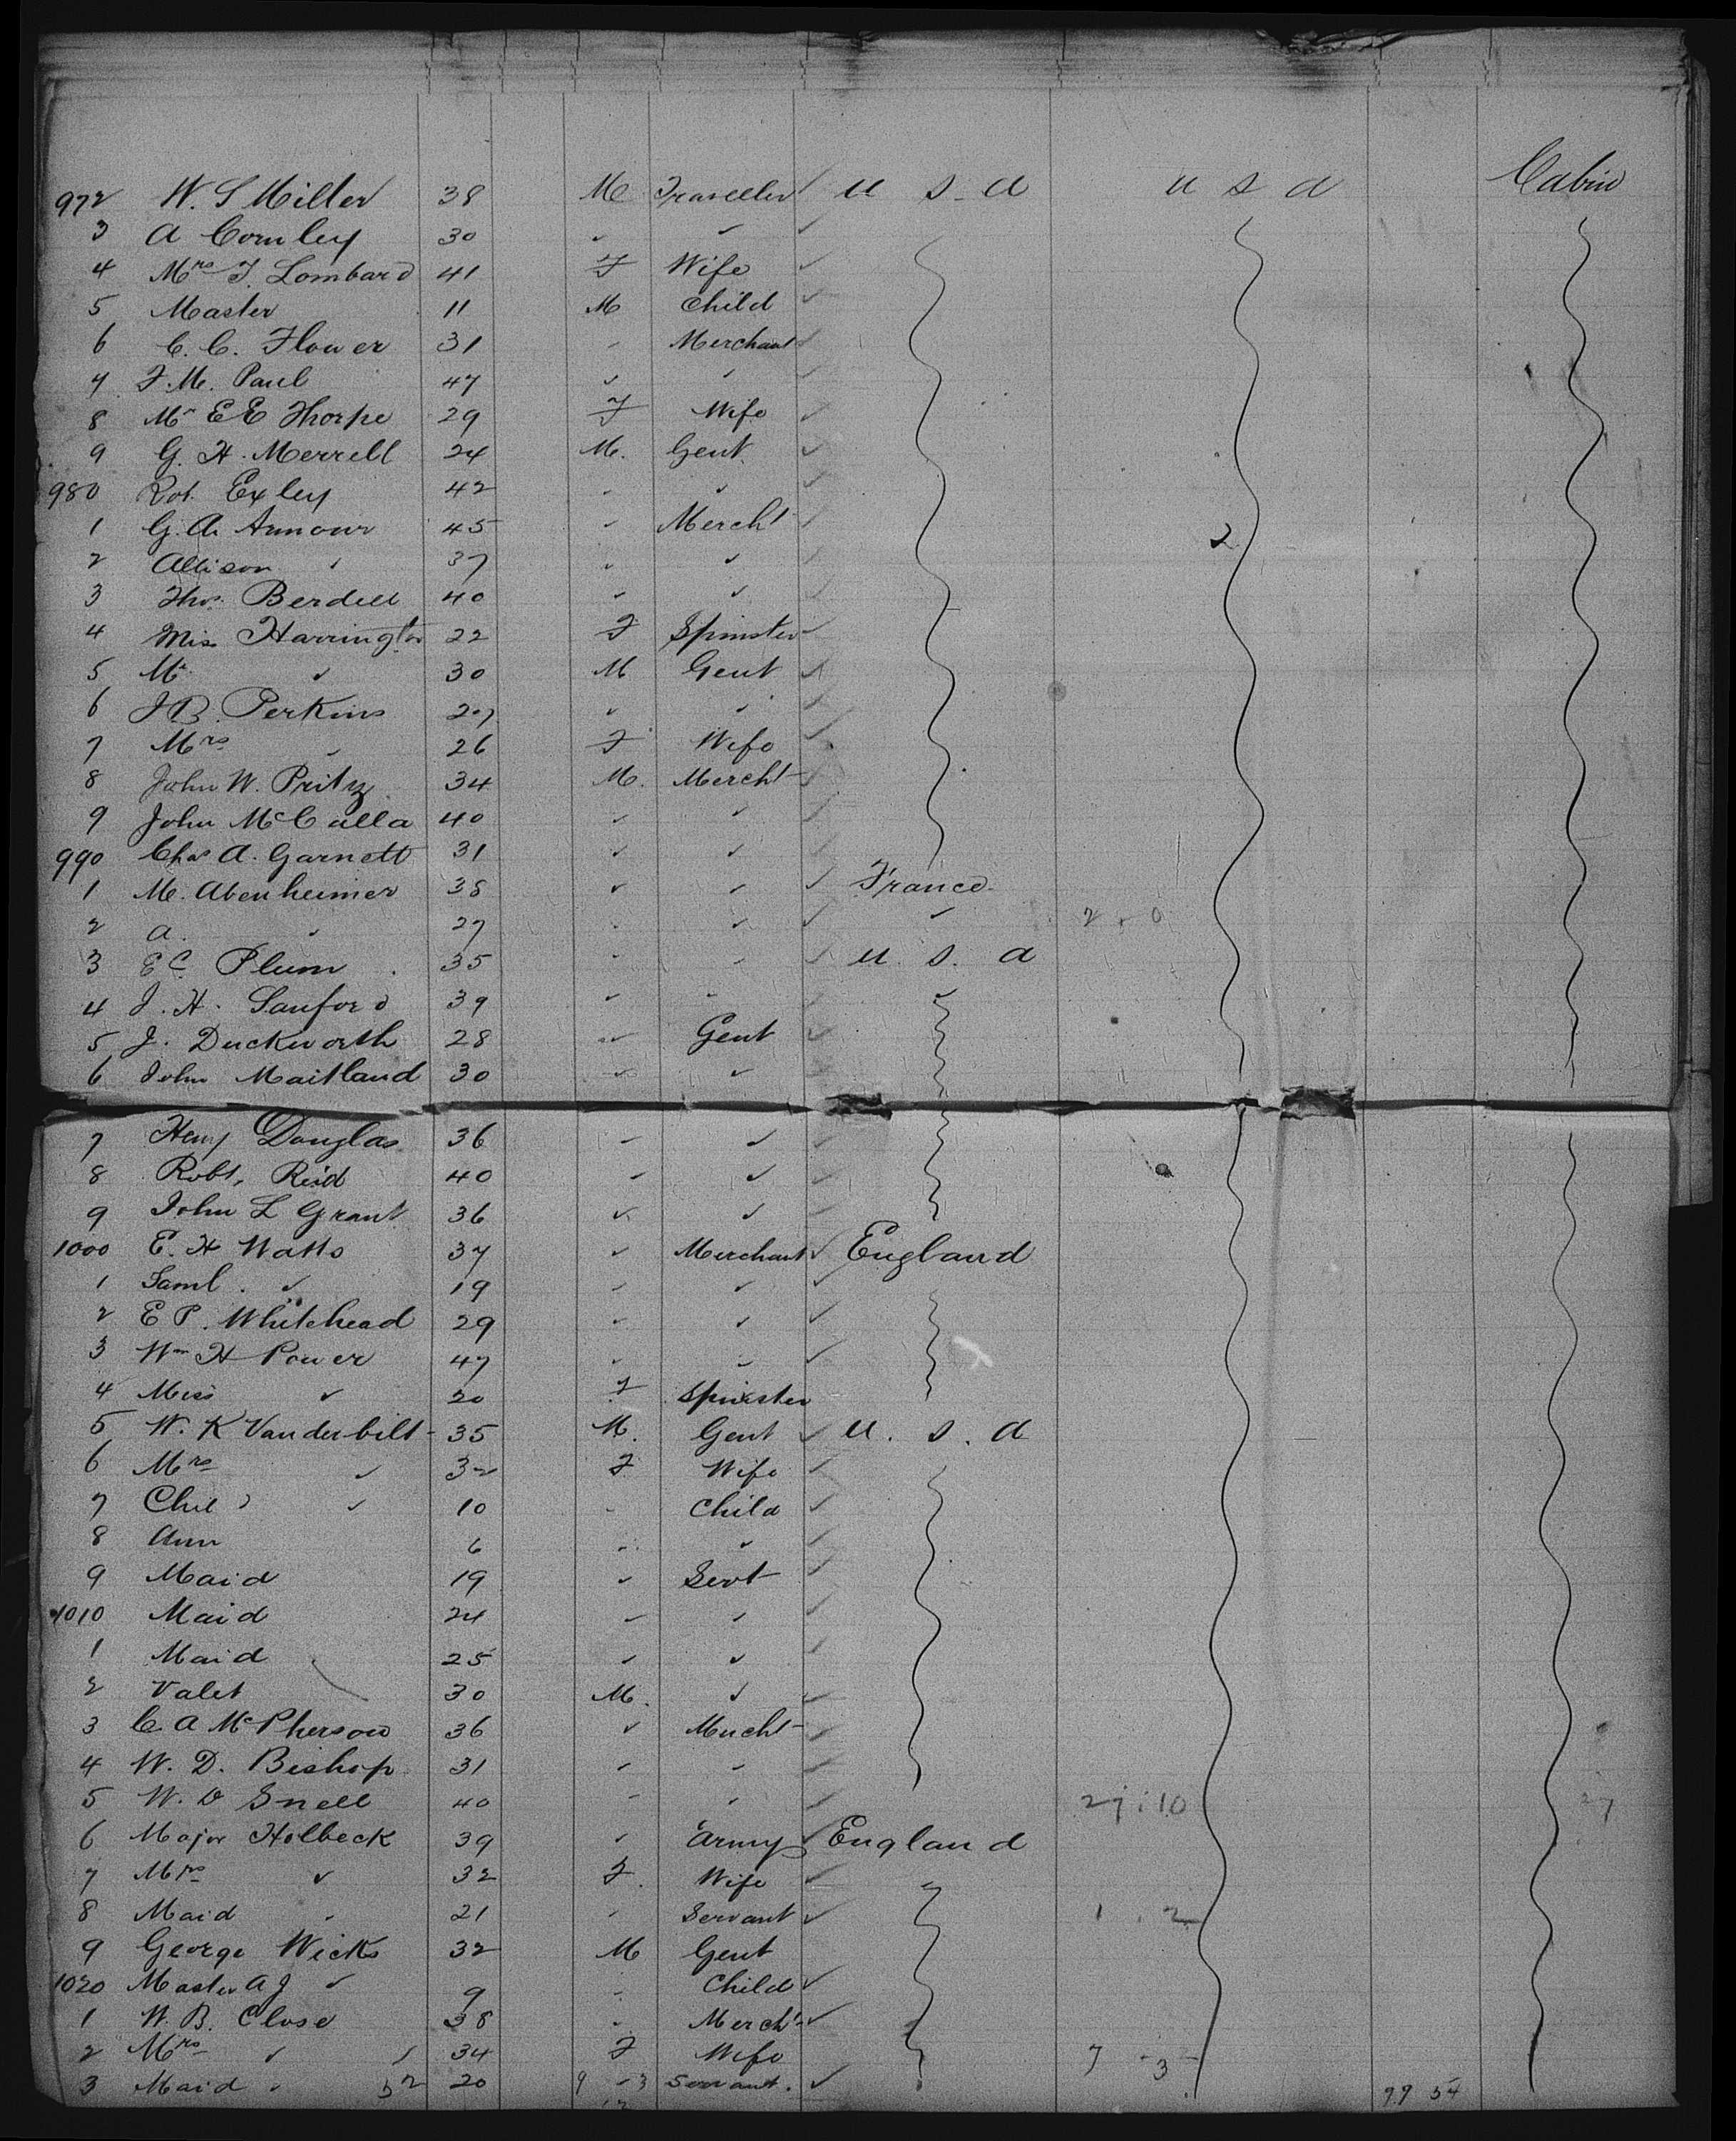 Cabin
972 W. S Miller 38 M Traveller ✓ U S A U S A
3 A Comley 30 ✓ ✓ ✓
4 Mrs F. Lombard 41 F Wife ✓
5 Master 11 M Child ✓
6 C. C. Flower 31 Merchant ✓
7 F. M. Paul 47 ✓ ✓ ✓
8 Mr E E Thorpe 29 F Wife ✓
9 G. H. Merrell 24 M. Gent ✓
980 Rot. Exley 42 ✓ ✓
1 G. A. Armour 45 ✓ Mercht ✓ 2
2 Allison ✓ 37 ✓ ✓ ✓
3 Thos. Berdell 40 ✓ ✓ ✓
4 Miss Harrington 22 F Spinster ✓
5 Mr. ✓ 30 M Gent ✓
6 J B. Perkins 27 ✓ ✓ ✓
7 Mrs ✓ 26 F Wife ✓
8 John W. Pritz 34 M. Mercht ✓
9 John McCalla 40 ✓ ✓ ✓
990 Chas A. Garnett 31 ✓ ✓ ✓
1 M. Abenheimer 38 ✓ ✓ ✓ France
2 A. ✓ 27 ✓ ✓ ✓
3 E C. Plum 35 ✓ ✓ ✓ U. S. A
4 J. H. Sanford 39 ✓ ✓ ✓ ✓
5 J. Duckworth 28 ✓ Gent ✓
6 John Maitland 30 ✓ ✓ ✓
7 Heny Douglas 36 ✓ ✓ ✓
8 Robt. Reid 40 ✓ ✓ ✓
9 John L Grant 36 ✓ ✓ ✓
1000 E. H Watts 37 ✓ Merchant ✓ England
1 Saml. ✓ 19 ✓ ✓ ✓
2 E P. Whitehead 29 ✓ ✓ ✓
3 Wm H Power 47 ✓ ✓ ✓
4 Miss ✓ 20 F Spinster
5 W. K Vanderbilt 35 M. Gent ✓ U. S. A
6 Mrs ✓ 32 F Wife ✓
7 Child ✓ 10 Child ✓
8 Ann 6 ✓ ✓
9 Maid 19 ✓ Servt ✓
1010 Maid 24 ✓ ✓ ✓
1 Maid 25 ✓ ✓ ✓
2 Valet 30 M. ✓ ✓
3 C. A McPherson 36 ✓ Mercht ✓
4 W. D. Bishop 31 ✓ ✓ ✓
5 W. D Snell 40 ✓ ✓ ✓ 27 : 10 27
6 Major Holbeck 39 ✓ Army ✓ England
7 Mrs ✓ 32 F. Wife ✓
8 Maid ✓ 21 Servant ✓ 1 . 2
9 George Wicks 32 M Gent
1020 Master A J ✓ 9 Child ✓
1 W. B. Close 38 Mercht ✓
2 Mrs ✓ 34 F Wife 7 - 3 -
3 Maid ✓ 52 20 9 - 3 Servant. ✓ 99 54